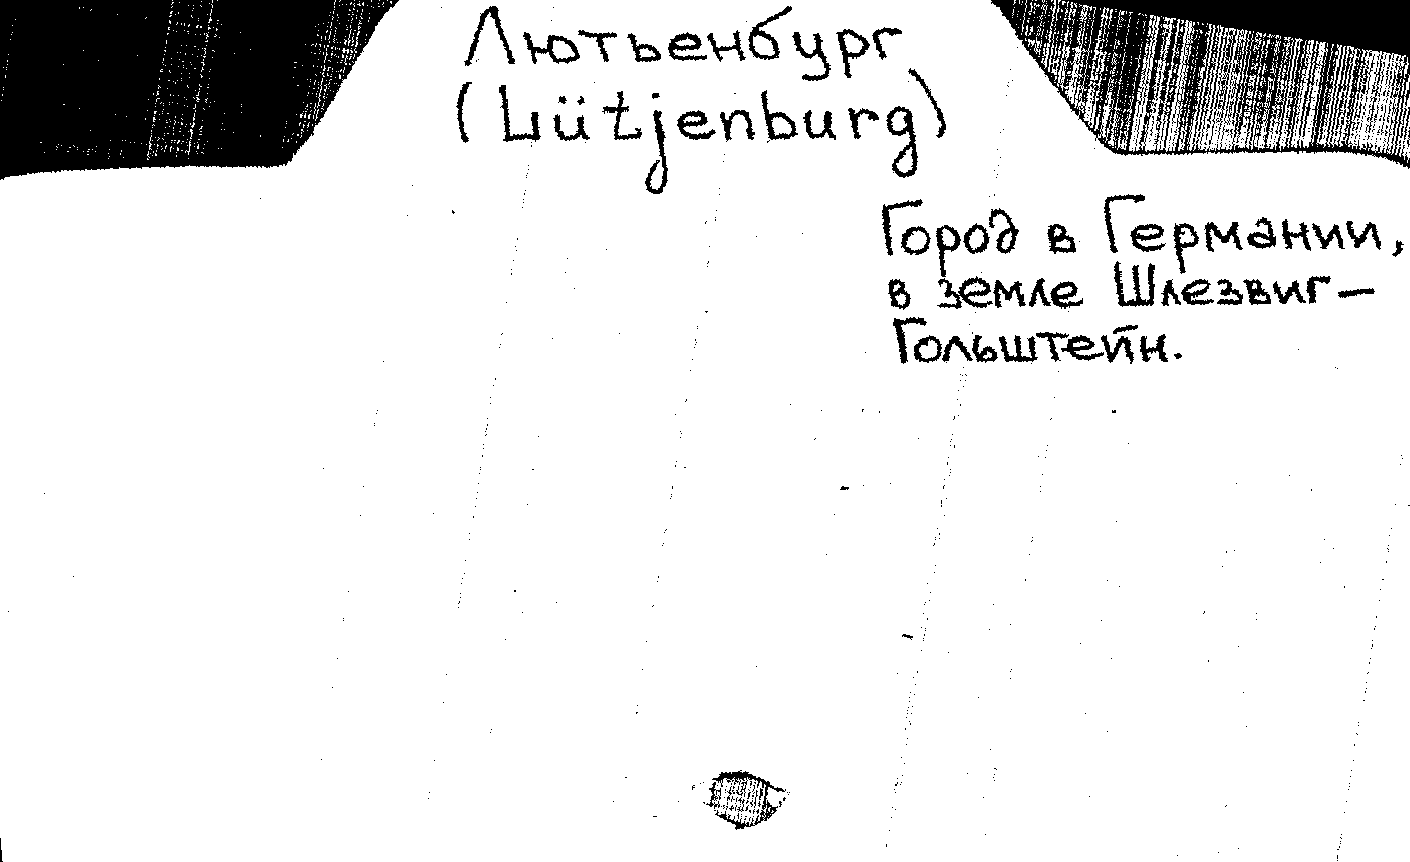 Лютьенбург
(Lütjenburg)
Город в Германии,
в земле Шлезвиг-
Гольштейн.